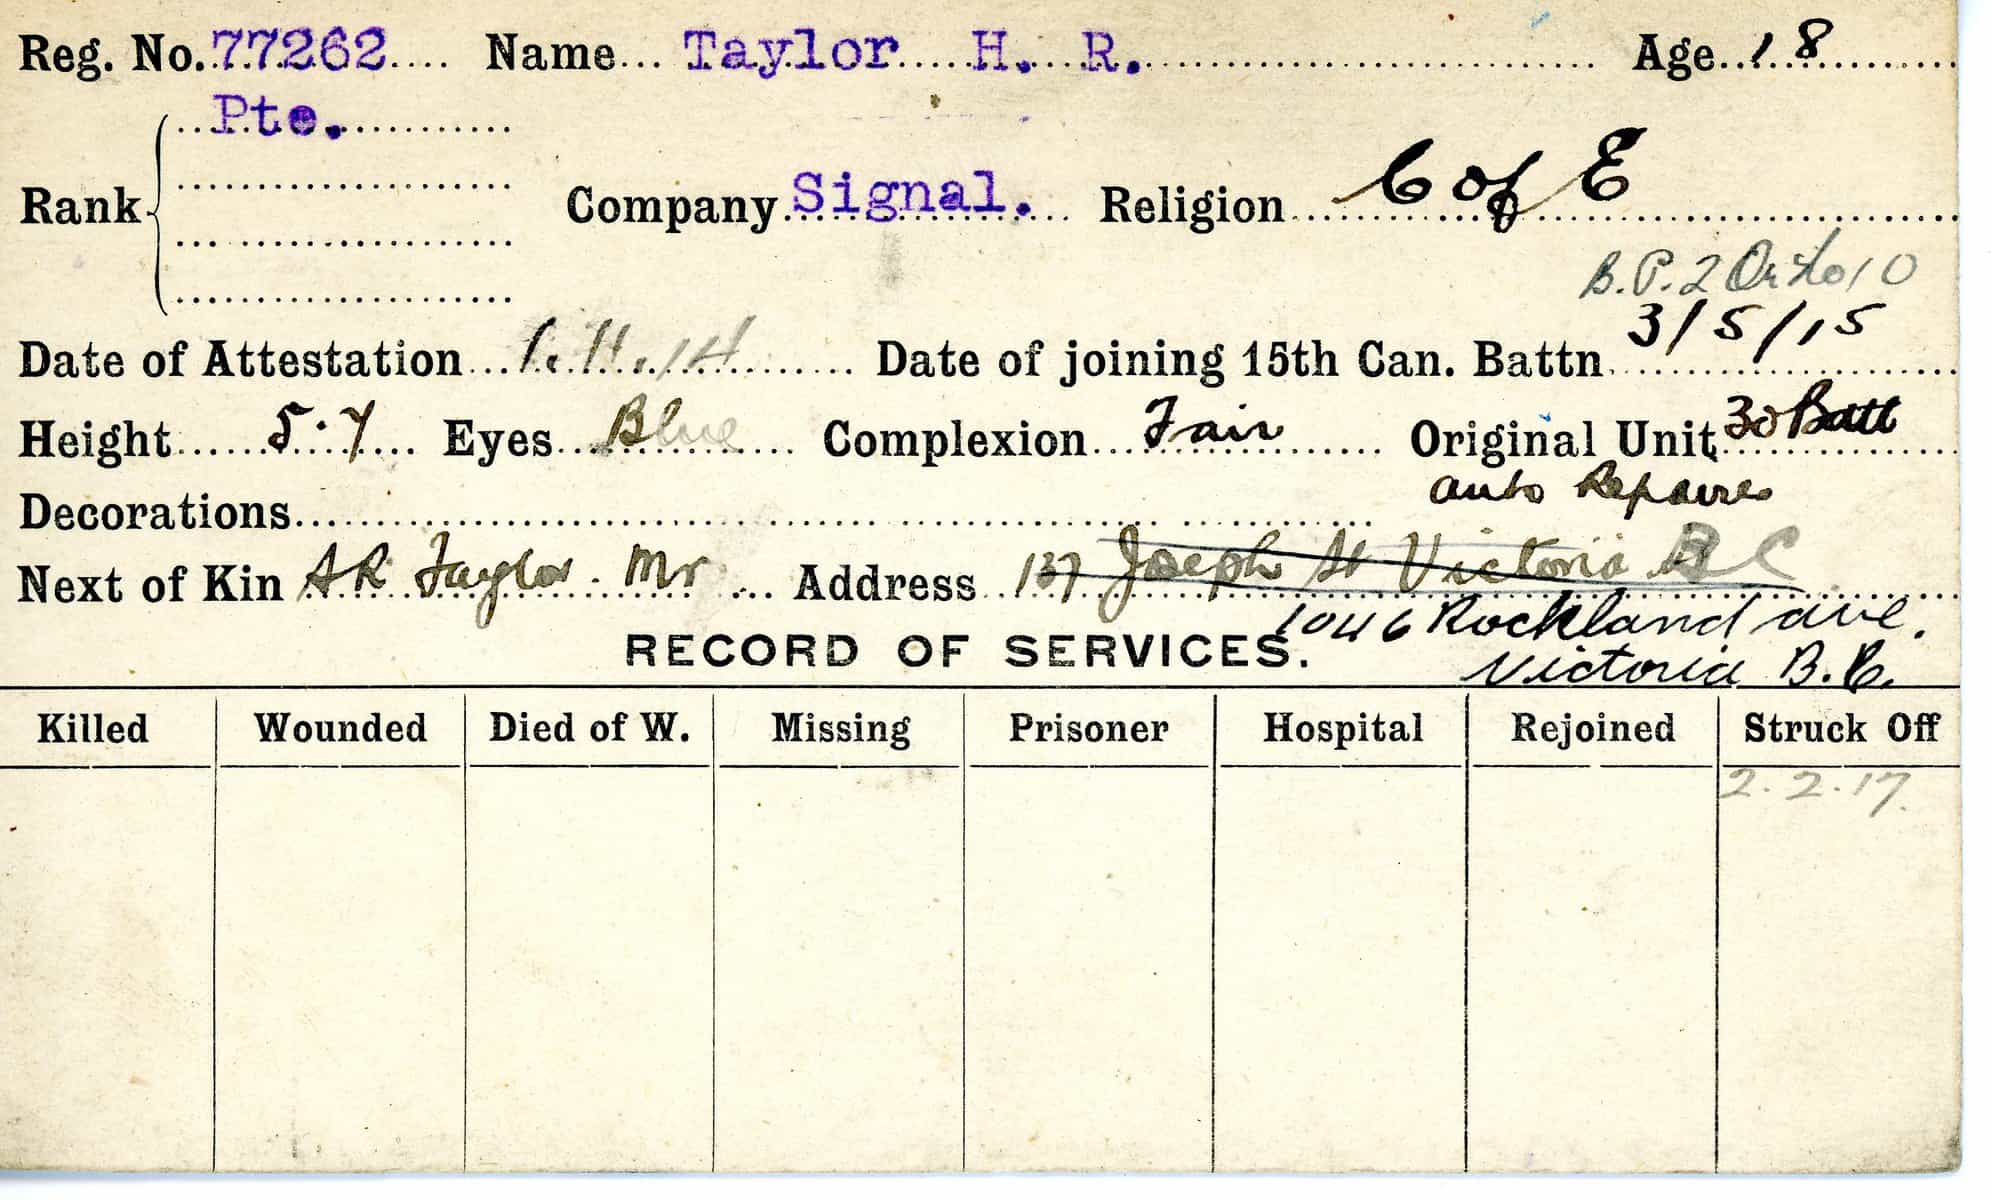 Reg. No. 77262 Name Taylor H. R. Age 18
Pte.
Rank Company Signal. Religion C of E
B.P. 2 Or 10
Date of Attestation 1.11.14 Date of joining 15th Can. Battn 3/5/15
Height 5.7 Eyes Blue Complexion Fair Original Unit 30 Batt
Decorations auto Repairer
Next of Kin AR Taylor. Mr Address 137 Joseph St Victoria BC
1046 Rockland ave.
RECORD OF SERVICES. Victoria B.C.
Killed Wounded Died of W. Missing Prisoner Hospital Rejoined Struck Off
2.2.17.